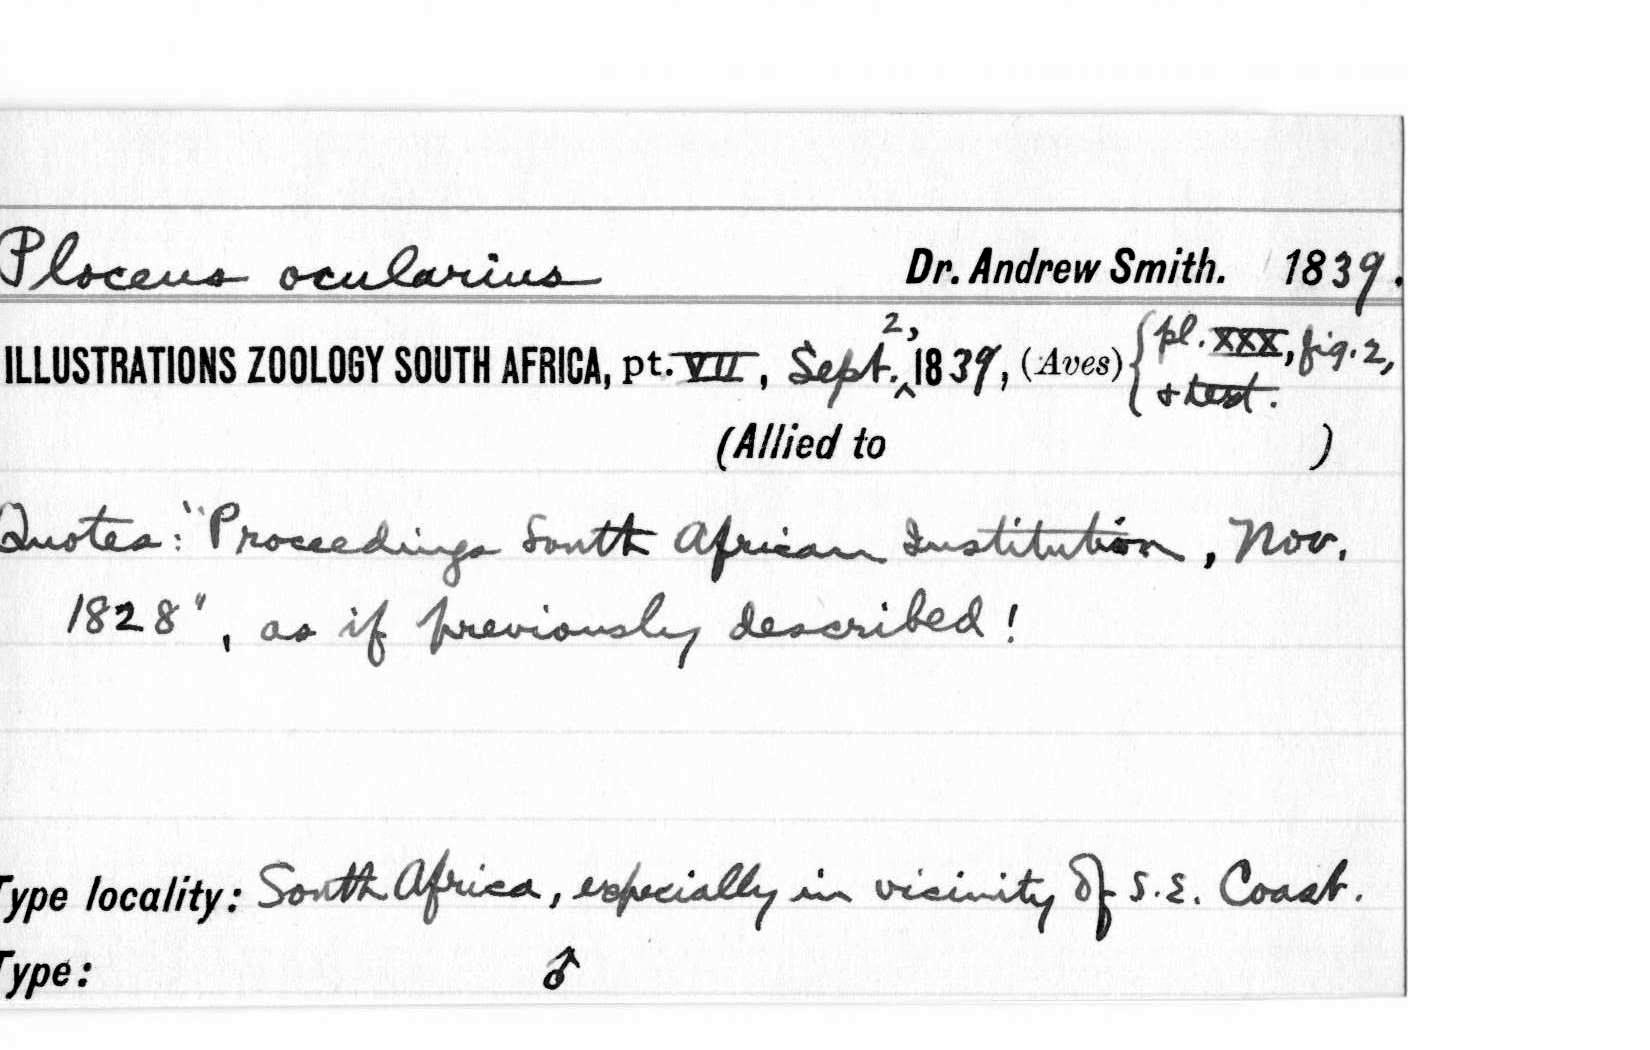 Ploceus ocularius Dr. Andrew Smith. 1839.
ILLUSTRATIONS ZOOLOGY SOUTH AFRICA, pt. VII, Sept. 2, 1839, (Aves) { pl. XXX, fig. 2,
& text.
(Allied to )
Quotes: "Proceedings South African Institution, Nov.
1828", as if previously described!
Type locality: South Africa, especially in vicinity of S.E. Coast.
Type: ♂